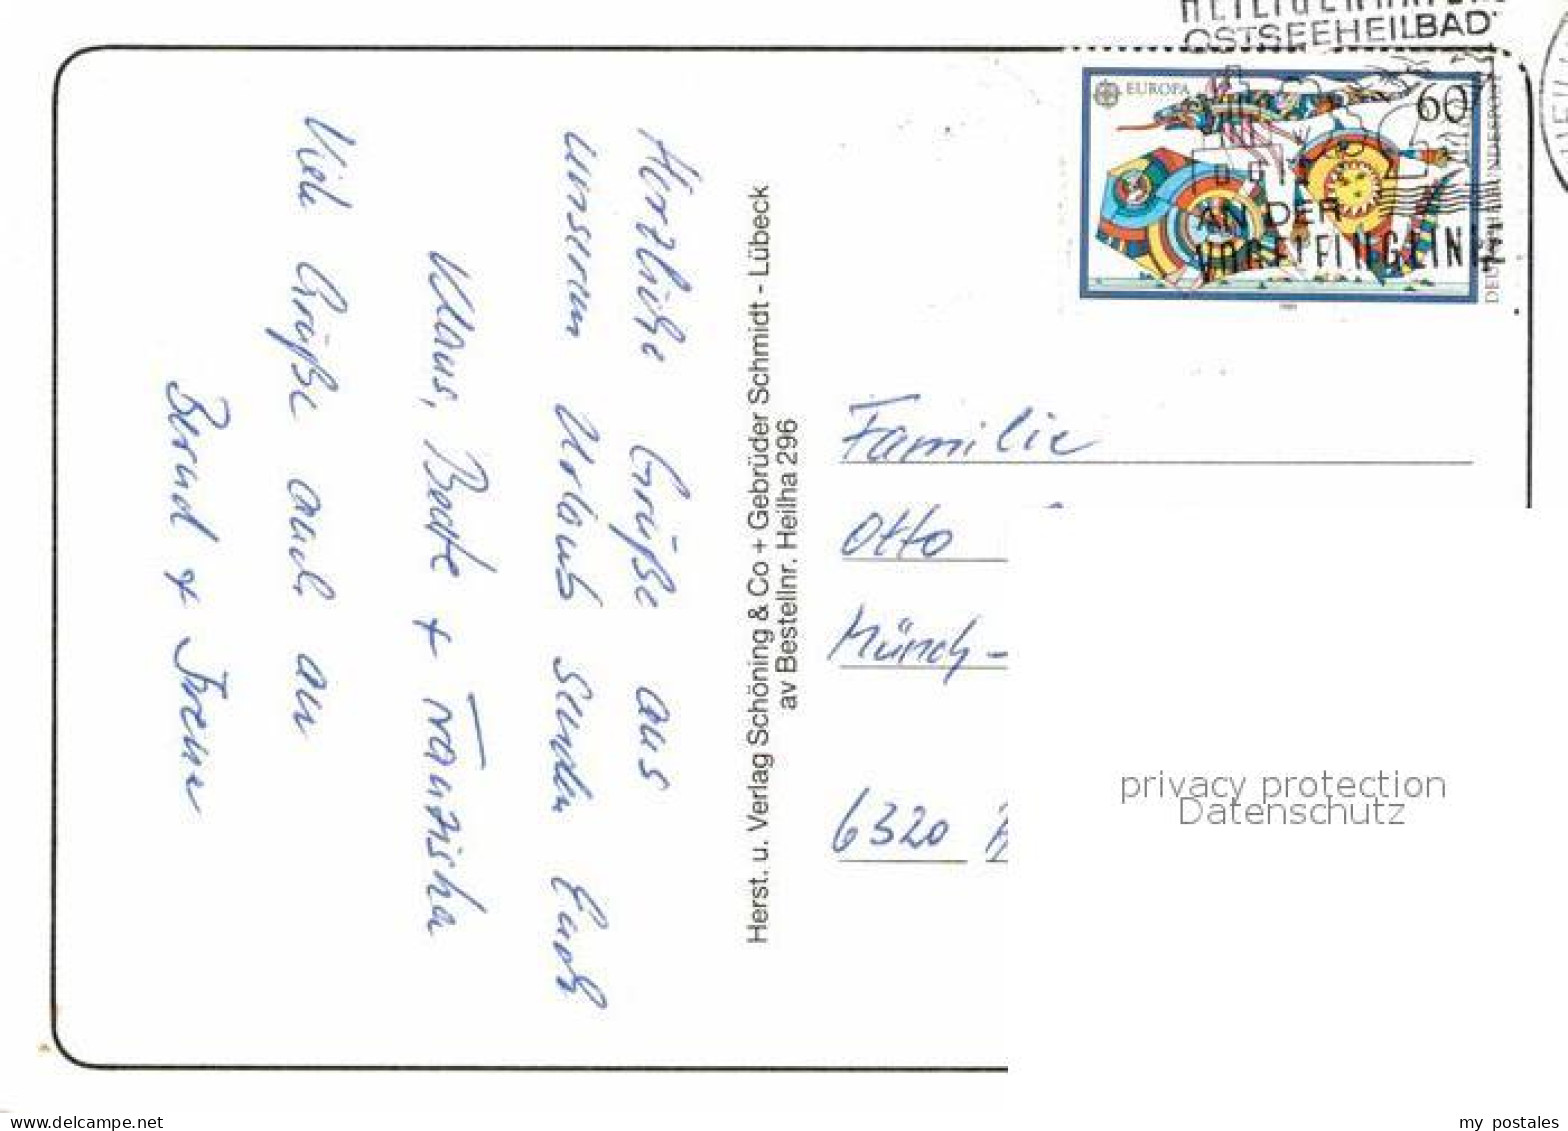 Herzliche Grüße aus
unserem Urlaub senden Euch
Klaus, Beate + Franziska
Viele Grüße auch an
Bernd +
Herst. u. Verlag Schöning & Co + Gebrüder Schmidt - Lübeck
av Bestellnr. Heilha 296
HEILIGENHAFEN
OSTSEEHEILBAD
AN DER
VOGELFLUGLINIE
EUROPA
60
DEUTSCHE BUNDESPOST
1989
Familie
Otto
Münch-
6320
privacy protection
Datenschutz
my postales